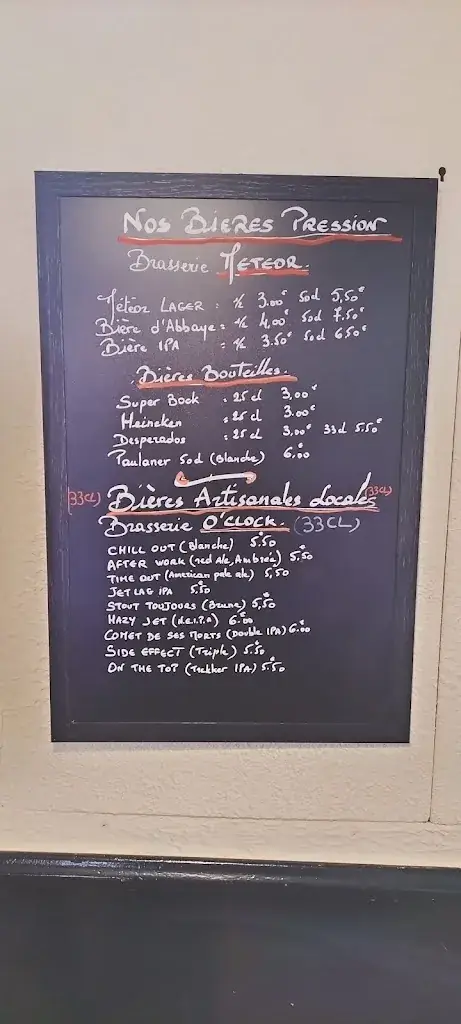 NOS BIERES PRESSION
Brasserie METEOR
Météor LAGER : ½ 3.00€ 50cl 5,50€
Bière d'Abbaye : ½ 4,00€ 50cl 7.50€
Bière IPA : ½ 3.50€ 50cl 6.50€
Bières Bouteilles.
Super Book : 25cl 3,00€
Heineken : 25cl 3.00€
Desperados : 25cl 3,00€ 33cl 5.50€
Paulaner 50cl (Blanche) 6.00
(33CL) Bières Artisanales Locales (33CL)
Brasserie O'CLOCK. (33CL)
CHILL OUT (Blanche) 5.50
AFTER WORK (red Ale, Ambrée) 5,50
TIME OUT (American pale ale) 5,50
JET LAG IPA 5,50
STOUT TOUJOURS (Brune) 5,50
HAZY JET (N.E.I.P.A) 6.00
COMET DE SES MORTS (Double IPA) 6.00
SIDE EFFECT (Triple) 5.50
ON THE TOP (Trekker IPA) 5.50